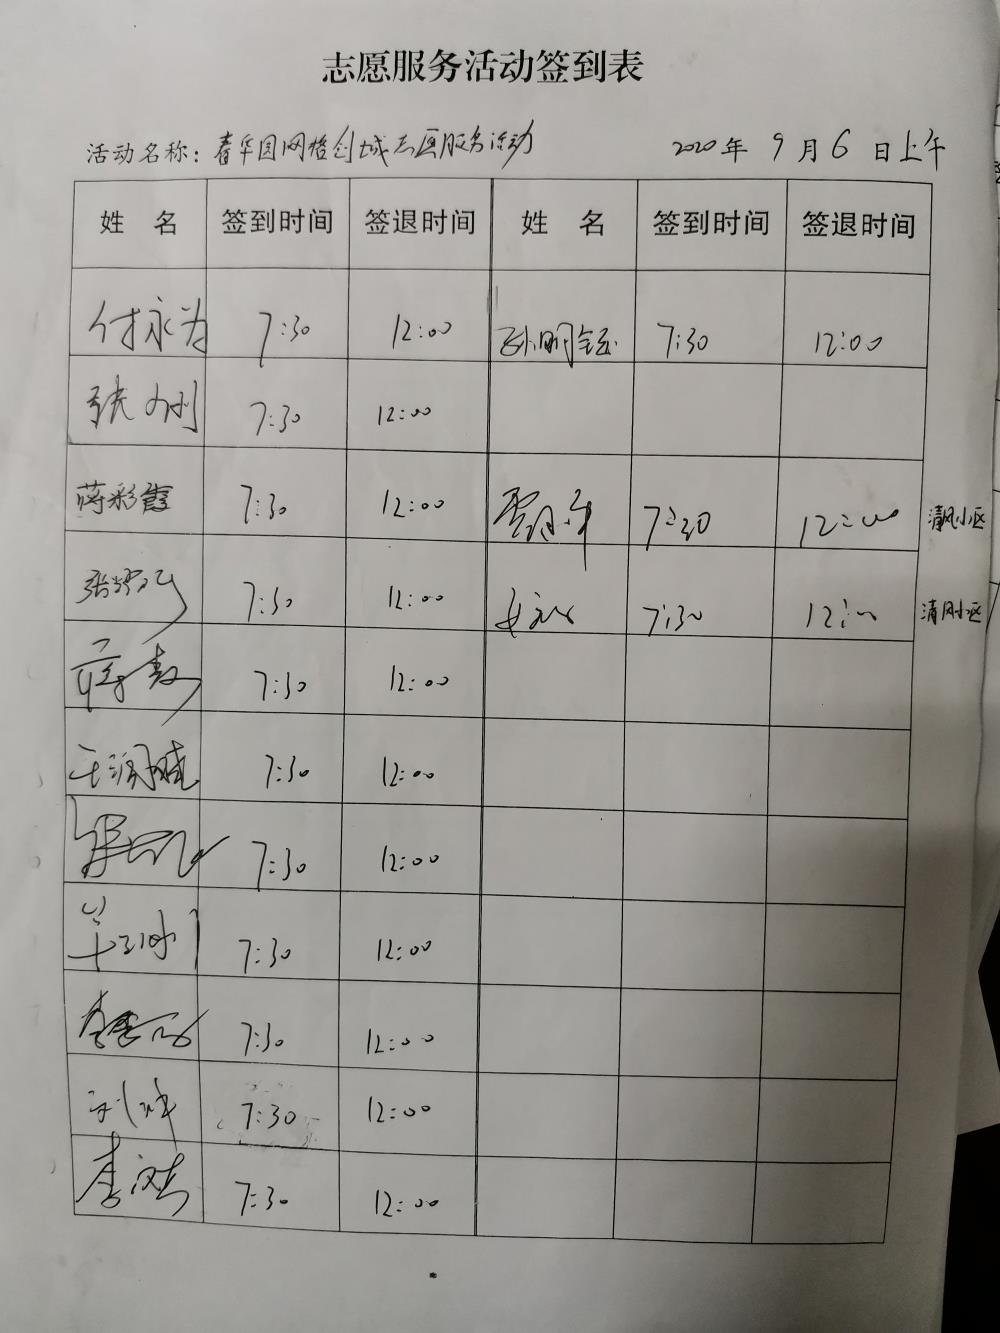 志愿服务活动签到表
活动名称：春华园网格创城志愿服务活动 2020年 9月6日上午
姓 名 签到时间 签退时间 姓 名 签到时间 签退时间
付永为 7:30 12:00 孙明钰 7:30 12:00
7:30 12:00
蒋彩霞 7:30 12:00 7:30 12:00 清风小区
7:30 12:00 7:30 12:00 清风小区
7:30 12:00
7:30 12:00
7:30 12:00
7:30 12:00
7:30 12:00
7:30 12:00
7:30 12:00